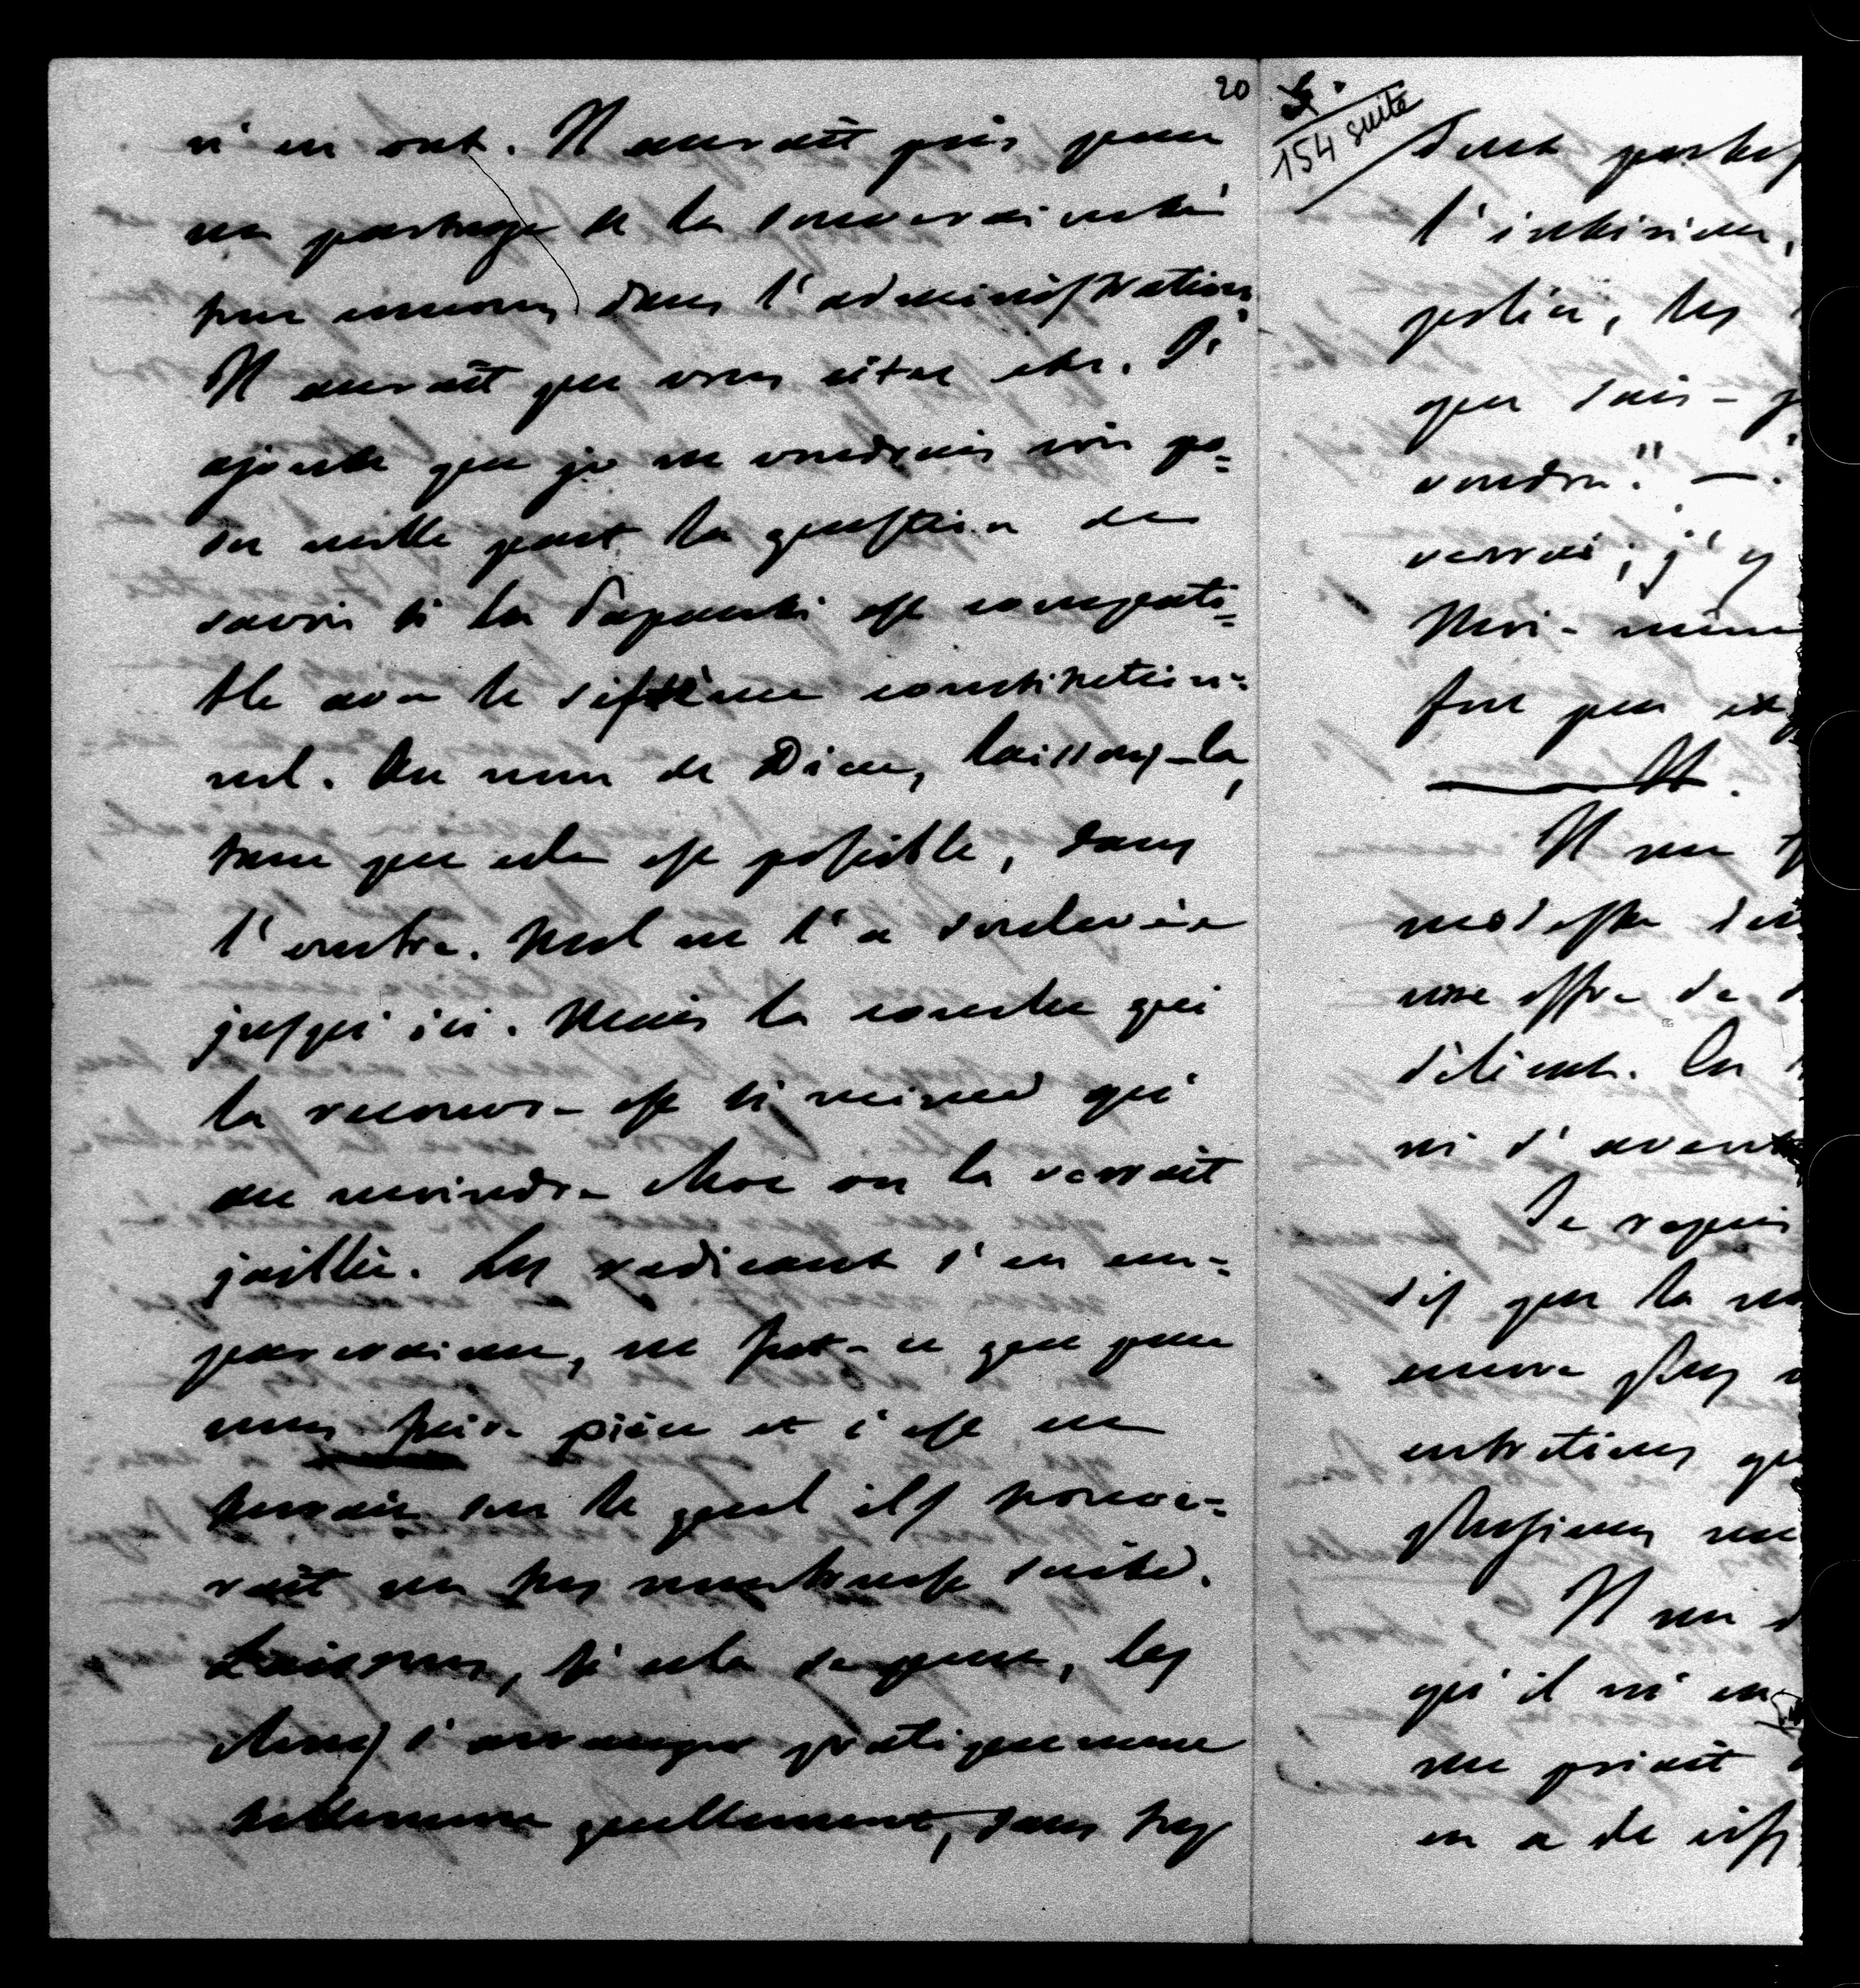 20
n'en ont. Il aurait pris pour
un partage de la souveraineté
une dans l'administration
Il aurait pu vous citer etc. J'
ajoute que je ne voudrais voir po=
sée nulle part la question de
savoir si la Papauté est compati=
ble avec le système constitution=
nel. Au nom de Dieu, laissons-la,
tant que cela est possible, dans
l'ombre. Nul ne l'a soulevée
jusqu'ici. Mais la couche qui
la recouvre est si mince qu'
au moindre choc on la verrait
jaillir. Les radicaux s'en em=
pareraient, ne fut-ce que pour
nous faire pièce et c'est un
terrain sur le quel ils trouve=
rait un très nombreuse suite.
Laissons, si cela se peut, les
choses s'arranger pratiquement
tellement quellement, sans trop
5.
154 suite
l'intérieur,
police, les
que sais-j
voudra." —
verrai; j'y
Moi-même
fut peu
Il me
modeste
une offre de
d'élient. On
ni d'
Je repris
dis que la
encore plus
entretiens qu
plusieurs
Il me d
qu'il m'en
me priait
en a de